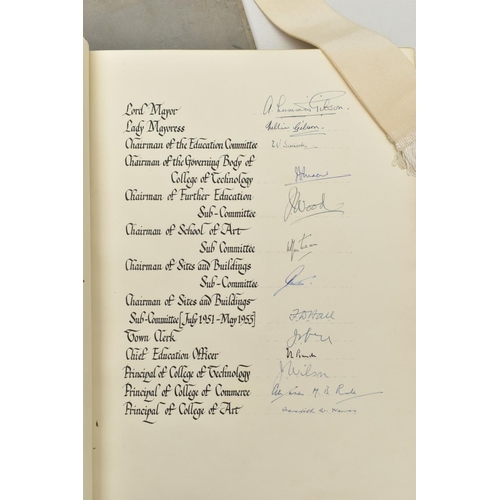 Lord Mayor A Gibson.
Lady Mayoress Gibson.
Chairman of the Education Committee
Chairman of the Governing Body of
College of Technology
Chairman of Further Education
Sub-Committee Wood
Chairman of School of Art
Sub Committee
Chairman of Sites and Buildings
Sub-Committee
Chairman of Sites and Buildings
Sub-Committee [July 1951-May 1955]
Town Clerk
Chief Education Officer
Principal of College of Technology Wilson
Principal of College of Commerce
Principal of College of Art